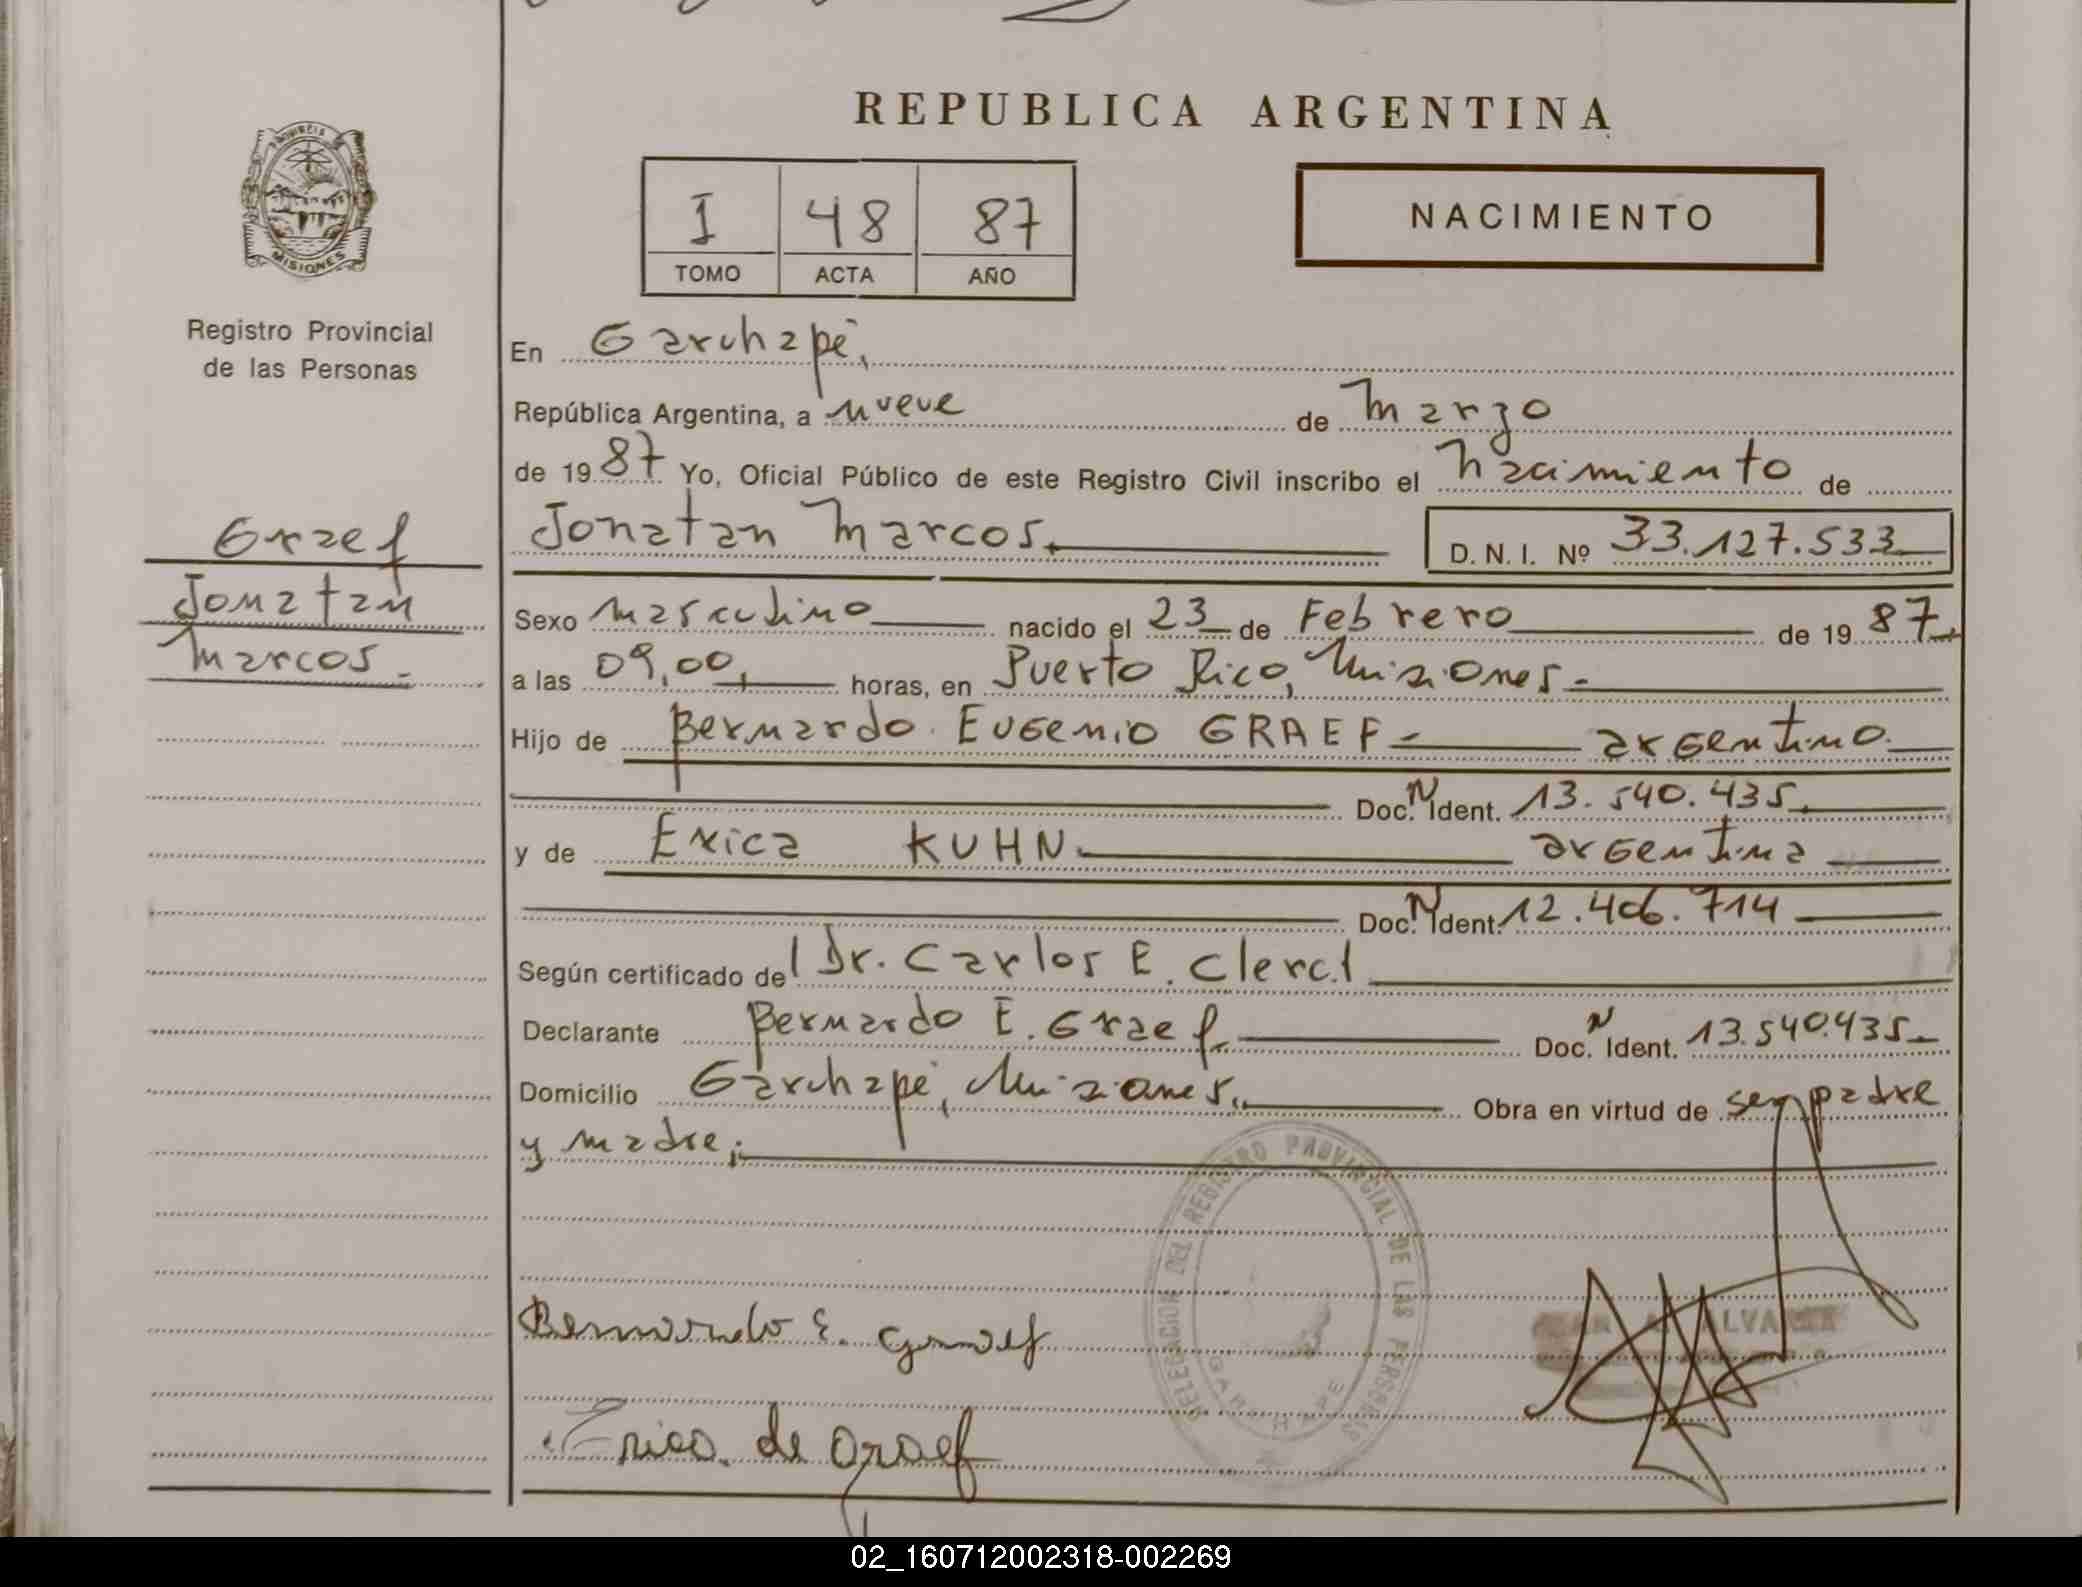 REPUBLICA ARGENTINA
PROVINCIA
MISIONES
Registro Provincial
de las Personas
I 48 87
TOMO ACTA AÑO
NACIMIENTO
En Garuhapé,
República Argentina, a nueve de Marzo
de 1987 Yo, Oficial Público de este Registro Civil inscribo el Nacimiento de
Graef
Jonatan
Marcos.
Jonatan Marcos. D. N. I. Nº 33.127.533
Sexo masculino nacido el 23 de Febrero de 1987
a las 09,00, horas, en Puerto Rico, Misiones.-
Hijo de Bernardo Eugenio GRAEF- argentino.
Doc. N Ident. 13.540.435.
y de Erica KUHN. argentina
Doc. N Ident. 12.406.714
Según certificado del Dr. Carlos E. Clerci
Declarante Bernardo E. Graef. Doc. N Ident. 13.540.435.-
Domicilio Garuhapé, Misiones. Obra en virtud de ser padre
y madre.
DELEGACION DEL REGISTRO PROVINCIAL DE LAS PERSONAS
GARUHAPE
Bernardo E. Graef
Erica. de Graef
02_160712002318-002269